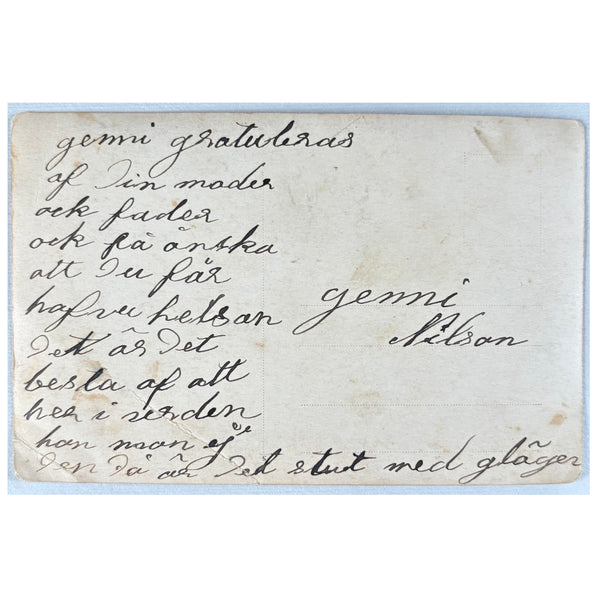 genni gratuleras
af Din moder
ock fader
ock få önska
att Du får
hafva helsan
Det är Det
besta af att
her i verden
han man ej
Den Då är Det slut med gläger
genni
Nilson